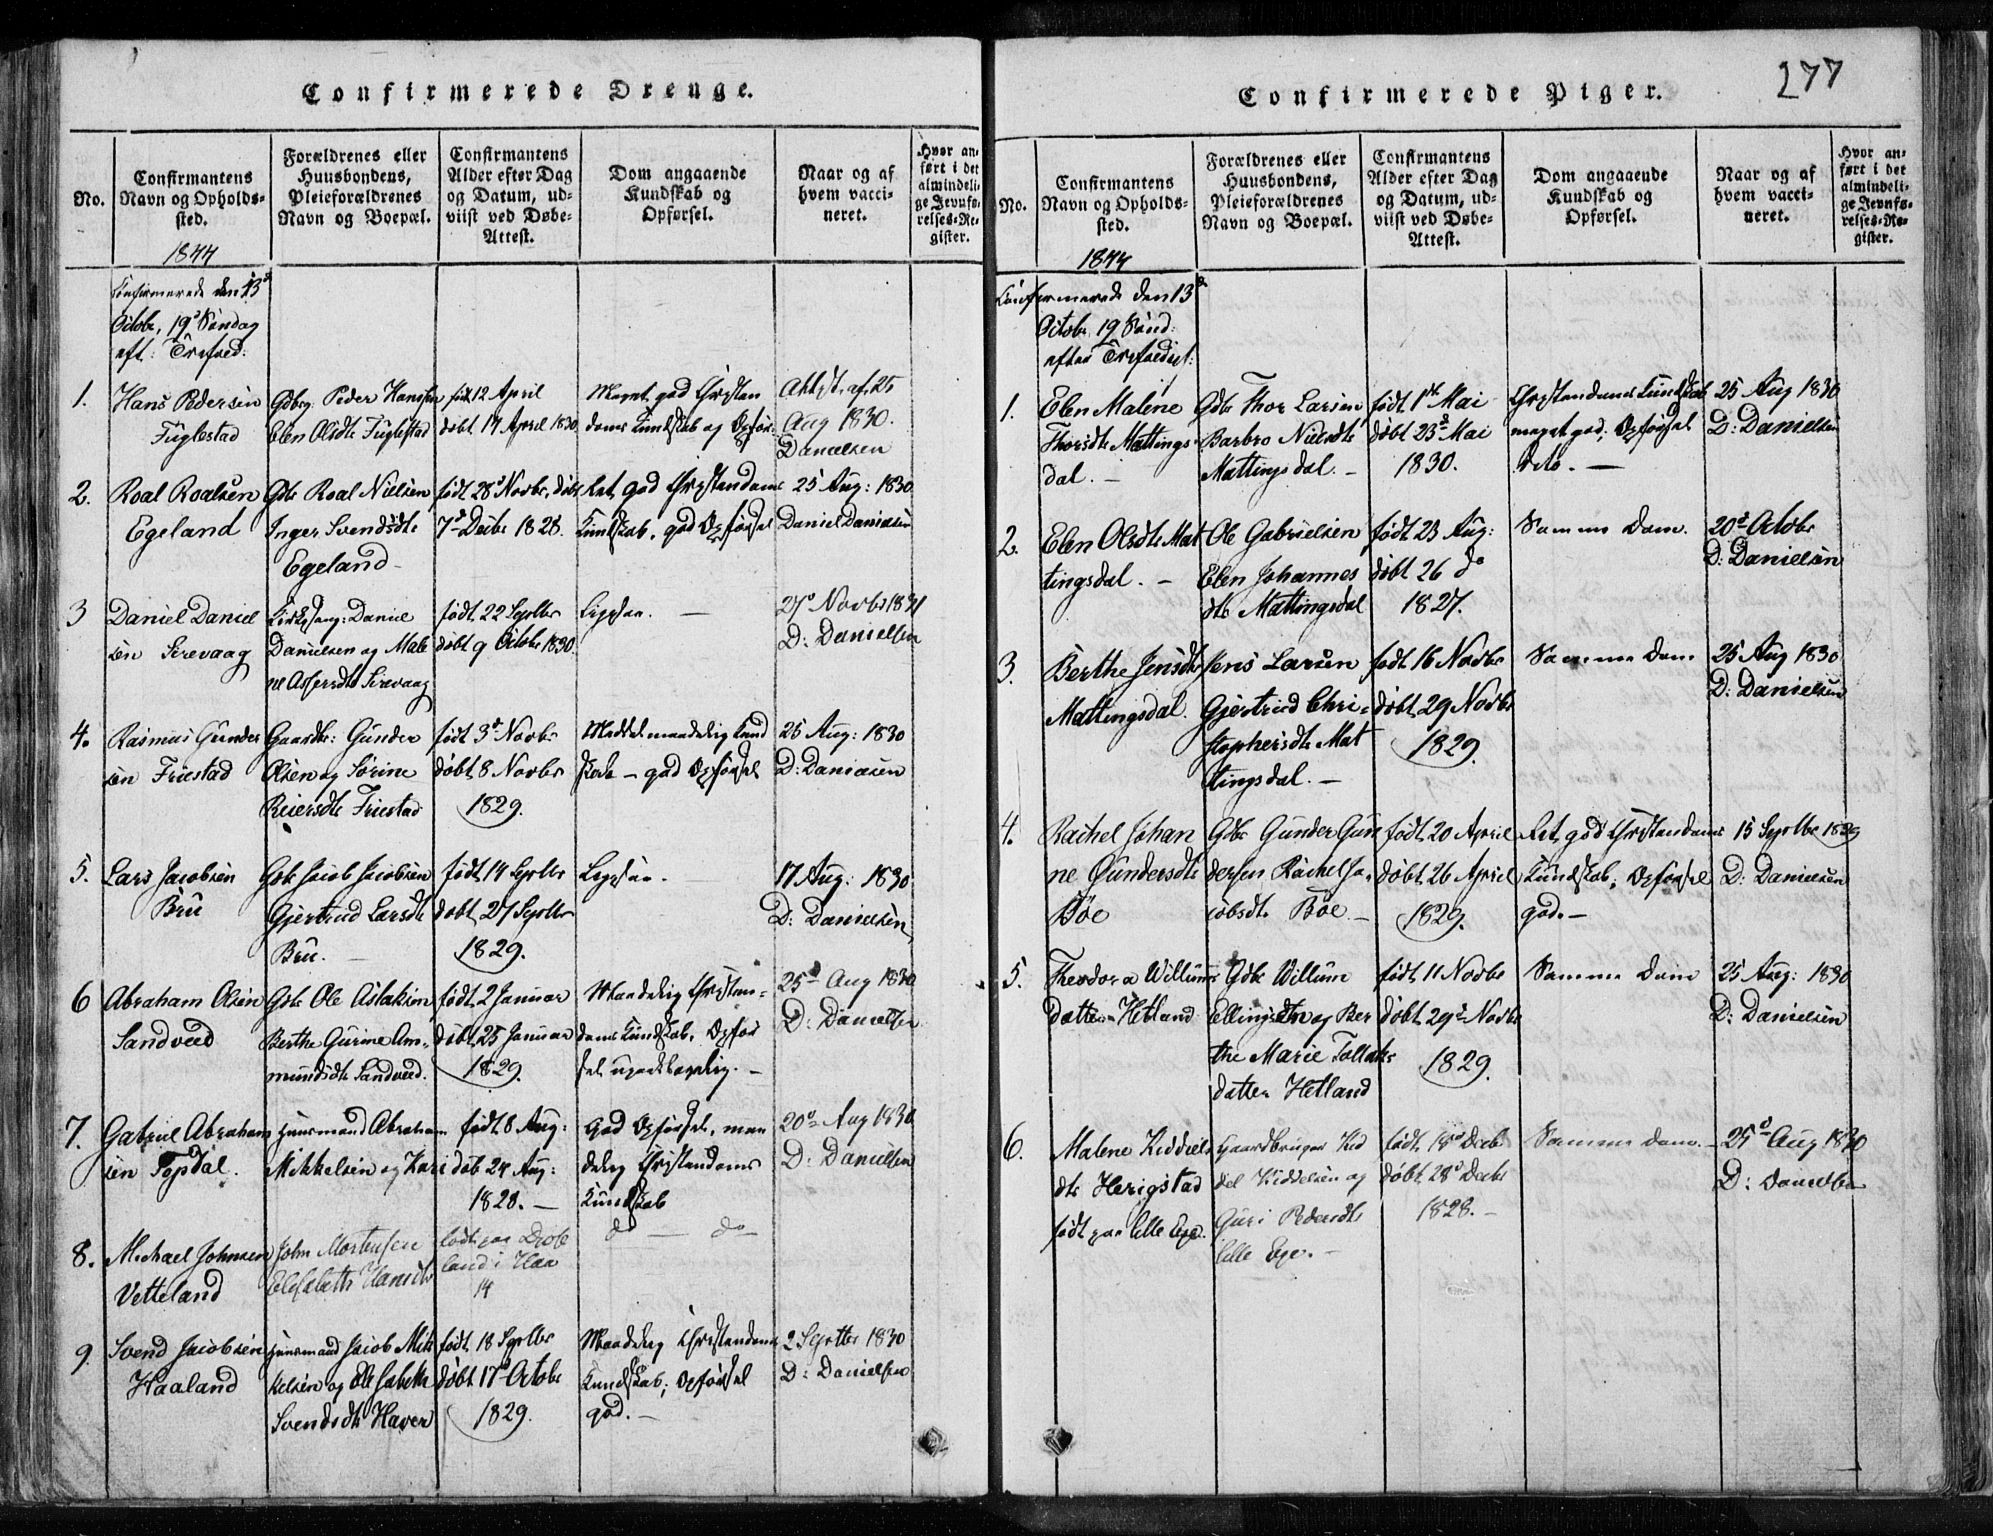 277
Confirmerede Drenge.
No.
Confirmantens
Navn og Opholds-
sted.
Forældrenes eller
Huusbondens,
Pleieforældrenes
Navn og Boepæl.
Confirmantens
Alder efter Dag
og Datum, ud-
viist ved Døbe-
Attest.
Dom angaaende
Kundskab og
Opførsel.
Naar og af
hvem vacci-
neret.
Hvor an-
ført i det
almindeli-
ge Jevnfø-
relses-Re-
gister.
1844
Confirmerede den 13de
Octobr, 19de Søndag
eft: Trefoed:
1.
Hans Pedersen
Fuglestad
Gdbrg. Peder Hansen
Elen Olsdtr Fuglestad
født 12 April
døbt 14 April 1830
Meget god Christen
doms Kundskab og Opfør:
Attest. af 25
Aug 1830.
Danielsen
2.
Roal Roalsen
Egeland
Gdbr Roal Nielsen
Inger Svendsdtr
Egeland
født 28de Novbr, døbt
7de Decbr 1828.
Ret god Christendoms
Kundskab, god Opførsel
25 Aug: 1830
Daniel Danielsen
3
Daniel Daniel
sen Sirevaag
Kirkesang: Daniel
Danielsen og Male
ne Assersdtr Sirevaag
født 22 Septbr
døbt 9 Octobr 1830.
Ligesaa. —
27de Novbr 1831
D: Danielsen
4.
Rasmus Gunder
sen Friestad
Gaardbr: Gunder
Olsen og Sørine
Reiersdtr Friestad
født 3de Novbr
døbt 8 Novbr
1829.
Meddelmaadelig Kund
skab — god Opførsel
25 Aug: 1830
D: Danielsen
5.
Lars Jacobsen
Bru
Gbr Jacob Jacobsen
Gjertrud Larsdtr
Bru. —
født 14 Septbr
døbt 27 Septbr
1829.
Ligesaa.
17 Aug: 1830
D: Danielsen
6
Abraham Olsen
Sandved
Gbr Ole Aslaksen
Berthe Gurine Am-
mundsdtr Sandved.
født 2 Januar
døbt 25 Januar
1829.
Maadelig Christen-
doms Kundskab, Opfør
sel upaaklagelig. —
25de Aug 1830
D: Danielsen
7.
Gabriel Abraham
sen Topdal.
Huusmand Abraham
Mikkelsen og Kari
født 8 Aug:
døb 24 Aug:
1828. —
God Opførsel, maa
delig Christendoms
Kundskab
20de Aug 1830
D: Danielsen
8.
Michael Johnsen
Vetteland
John Mortensen
Elisabeth Hansdtr
født paa
land i Haa
14
do — do
9.
Svend Jacobsen
Haaland
Huusmand Jacob Mik
kelsen og Elisabeth
Svendsdtr Haver
født 18 Septbr
døbt 17de Octobr
1829.
Maadelig Christendoms
Kundskab; Opførsel
god. —
2 Septbr 1830
D: Danielsen
Confirmerede Piger.
No.
Confirmantens
Navn og Opholds-
sted.
Forældrenes eller
Huusbondens,
Pleieforældrenes
Navn og Boepæl.
Confirmantens
Alder efter Dag
og Datum, ud-
viist ved Døbe-
Attest.
Dom angaaende
Kundskab og
Opførsel.
Naar og af
hvem vacci-
neret.
Hvor an-
ført i det
almindeli-
ge Jevnfø-
relses-Re-
gister.
1844
Confirmerede den 13de
Octobr 19 Sønd:
efter Trefoedigh:
1.
Elen Malene
Thorsdtr Mattings
dal. —
Gdbr Thor Larsen
Barbro Nielsdtr
Mattingsdal. —
født 1ste Mai
døbt 23de Mai
1830.
Christendoms Kundskab
meget god; Opførsel
dito. —
25 Aug 1830
D: Danielsen
2.
Elen Olsdtr Mat
tingsdal. —
Ole Gabrielsen
Elen Johannes
dtr Mattingsdal
født 23 Aug:
døbt 26 do
1827.
Samme Dom.
20de Octobr
D: Danielsen
3.
Berthe Jensdtr
Mattingsdal.
Jens Larsen
Gjertrud Chri-
stophersdtr Mat
tingsdal. —
født 16 Novbr
døbt 29 Novbr
1829.
Samme Dom
25 Aug 1830
D: Danielsen
4.
Rachel Johan
ne Gundersdtr
Bøe
Gdbr Gunder Gun
dersen Rachel Ja-
cobsdtr Bøe. —
født 20 April
døbt 26 April
1829.
Ret god Christendoms
Kundskab; Opførsel
god. —
15 Septbr 1829
D: Danielsen
5.
Theodora Willums
datter Hetland
Gdbr Willum
Ellingsen og Ber
the Marie Tollaks
datter Hetland
født 11 Novbr
døbt 29de Novbr
1829.
Samme Dom
25 Aug: 1830
D: Danielsen
6.
Malene Kiddels
dtr Herigstad
født paa lille Ege.
Gaardbruger Kid
del Kiddelsen og
Guri Pedersdtr
lille Ege. —
født 18de Decbr
døbt 28de Decbr
1828. —
Samme Dom. —
25de Aug 1830
D: Danielsen